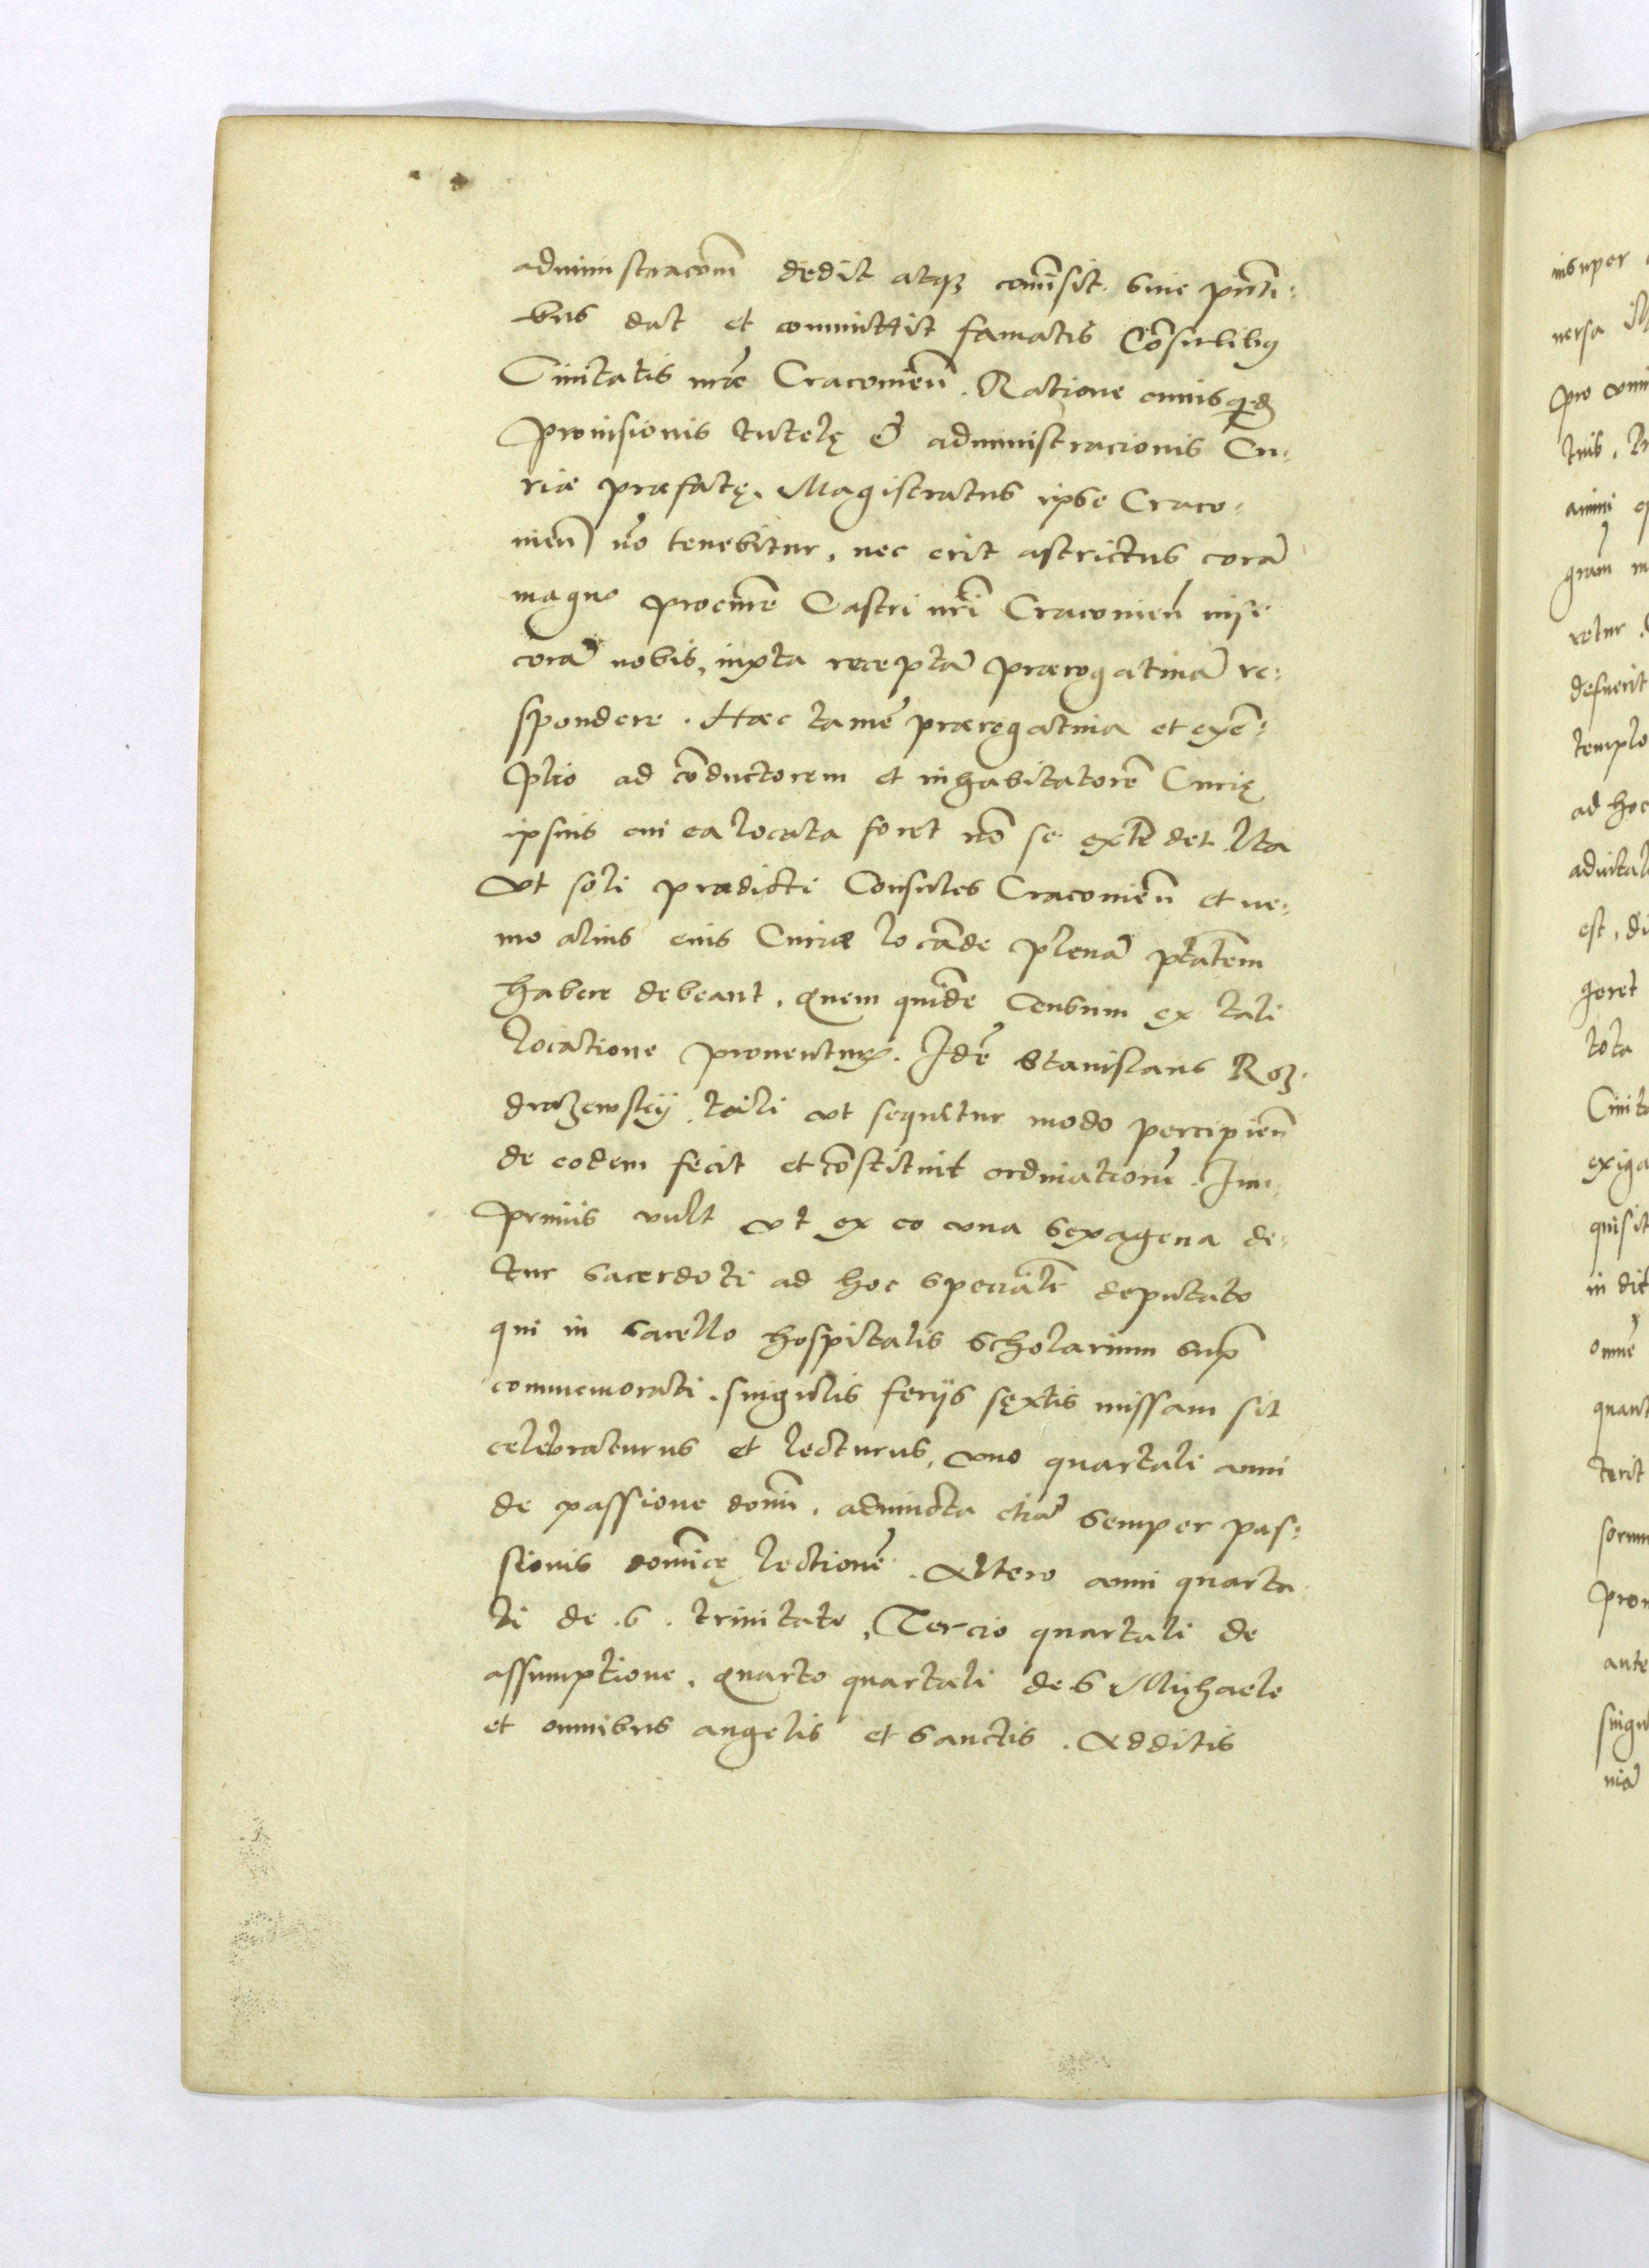 administracoem dedit atq3 comisit. siue pnti:
bus dat et committit famatis Cosulibq
Ciuitatis nrae Cracouien. Ratione cuiusq.d
prouisionis tutelę & administracionis Cu:
riae praefatę. Magistratus ipse Craco:
uien no tenebitur, nec erit astrictus cora
magno procure Castri nri Cracouien nisi
cora nobis, iuxta recepta praerogatiua re:
spondere. Haec tame praerogatiua et exe:
ptio ad coductorem et inhabitatore Curię
ipsius cui ea locata foret no se extedet. Ita
vt soli praedicti Consules Cracouien et ne:
mo alius eius Curiae locade plena ptatem
habere debeant. Quem quide Censum ex tali
locatione prouenturu. Ide Stanislaus Roz:
drazewskij, tali vt sequitur modo percipien
de eodem fecit et costituit ordinatione. Im:
primis vult vt ex eo vna sexagena de:
tur sacerdoti ad hoc specialite deputato
qui in sacello hospitalis scholarium sup
commemorati. singulis ferijs sextis missam sit
celebraturus et lecturus, vno quartali anni
de passione domi. adiuncta etia semper pas:
sionis domicę lectione. Altero anni quarta
li de .S. trinitate, Tercio quartali de
assumptione, quarto quartali de S Michaele
et omnibus angelis et Sanctis. Additis
insuper
uersa
pro
tuis,
animi
gram
retur
defuerit
templo
ad hoc
est,
tota
exiga
quisit
in dit
omne
quant
terit
ante
singu